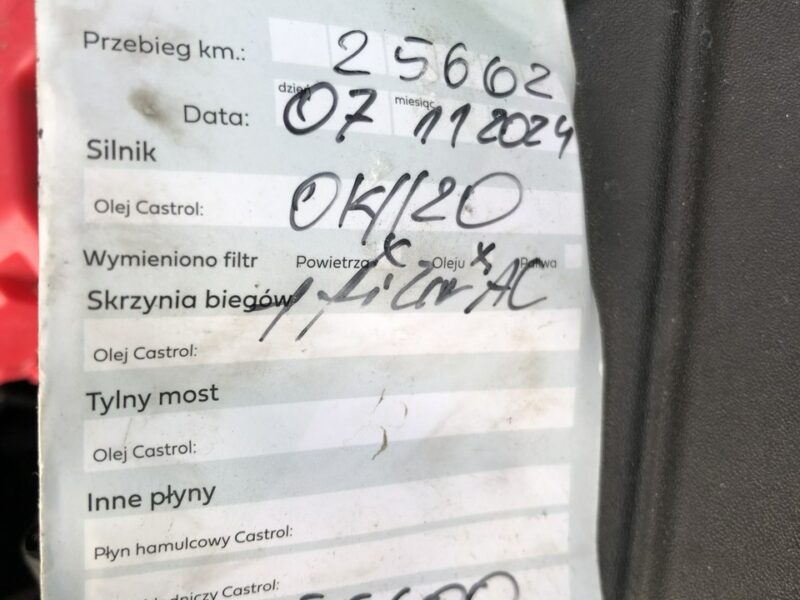 Przebieg km.: 25662
dzień miesiąc
Data: 07 11 2024
Silnik
Olej Castrol: OW/20
Wymieniono filtr Powietrza x Oleju x Paliwa
Skrzynia biegów + filtr AC
Olej Castrol:
Tylny most
Olej Castrol:
Inne płyny
Płyn hamulcowy Castrol:
Castrol: